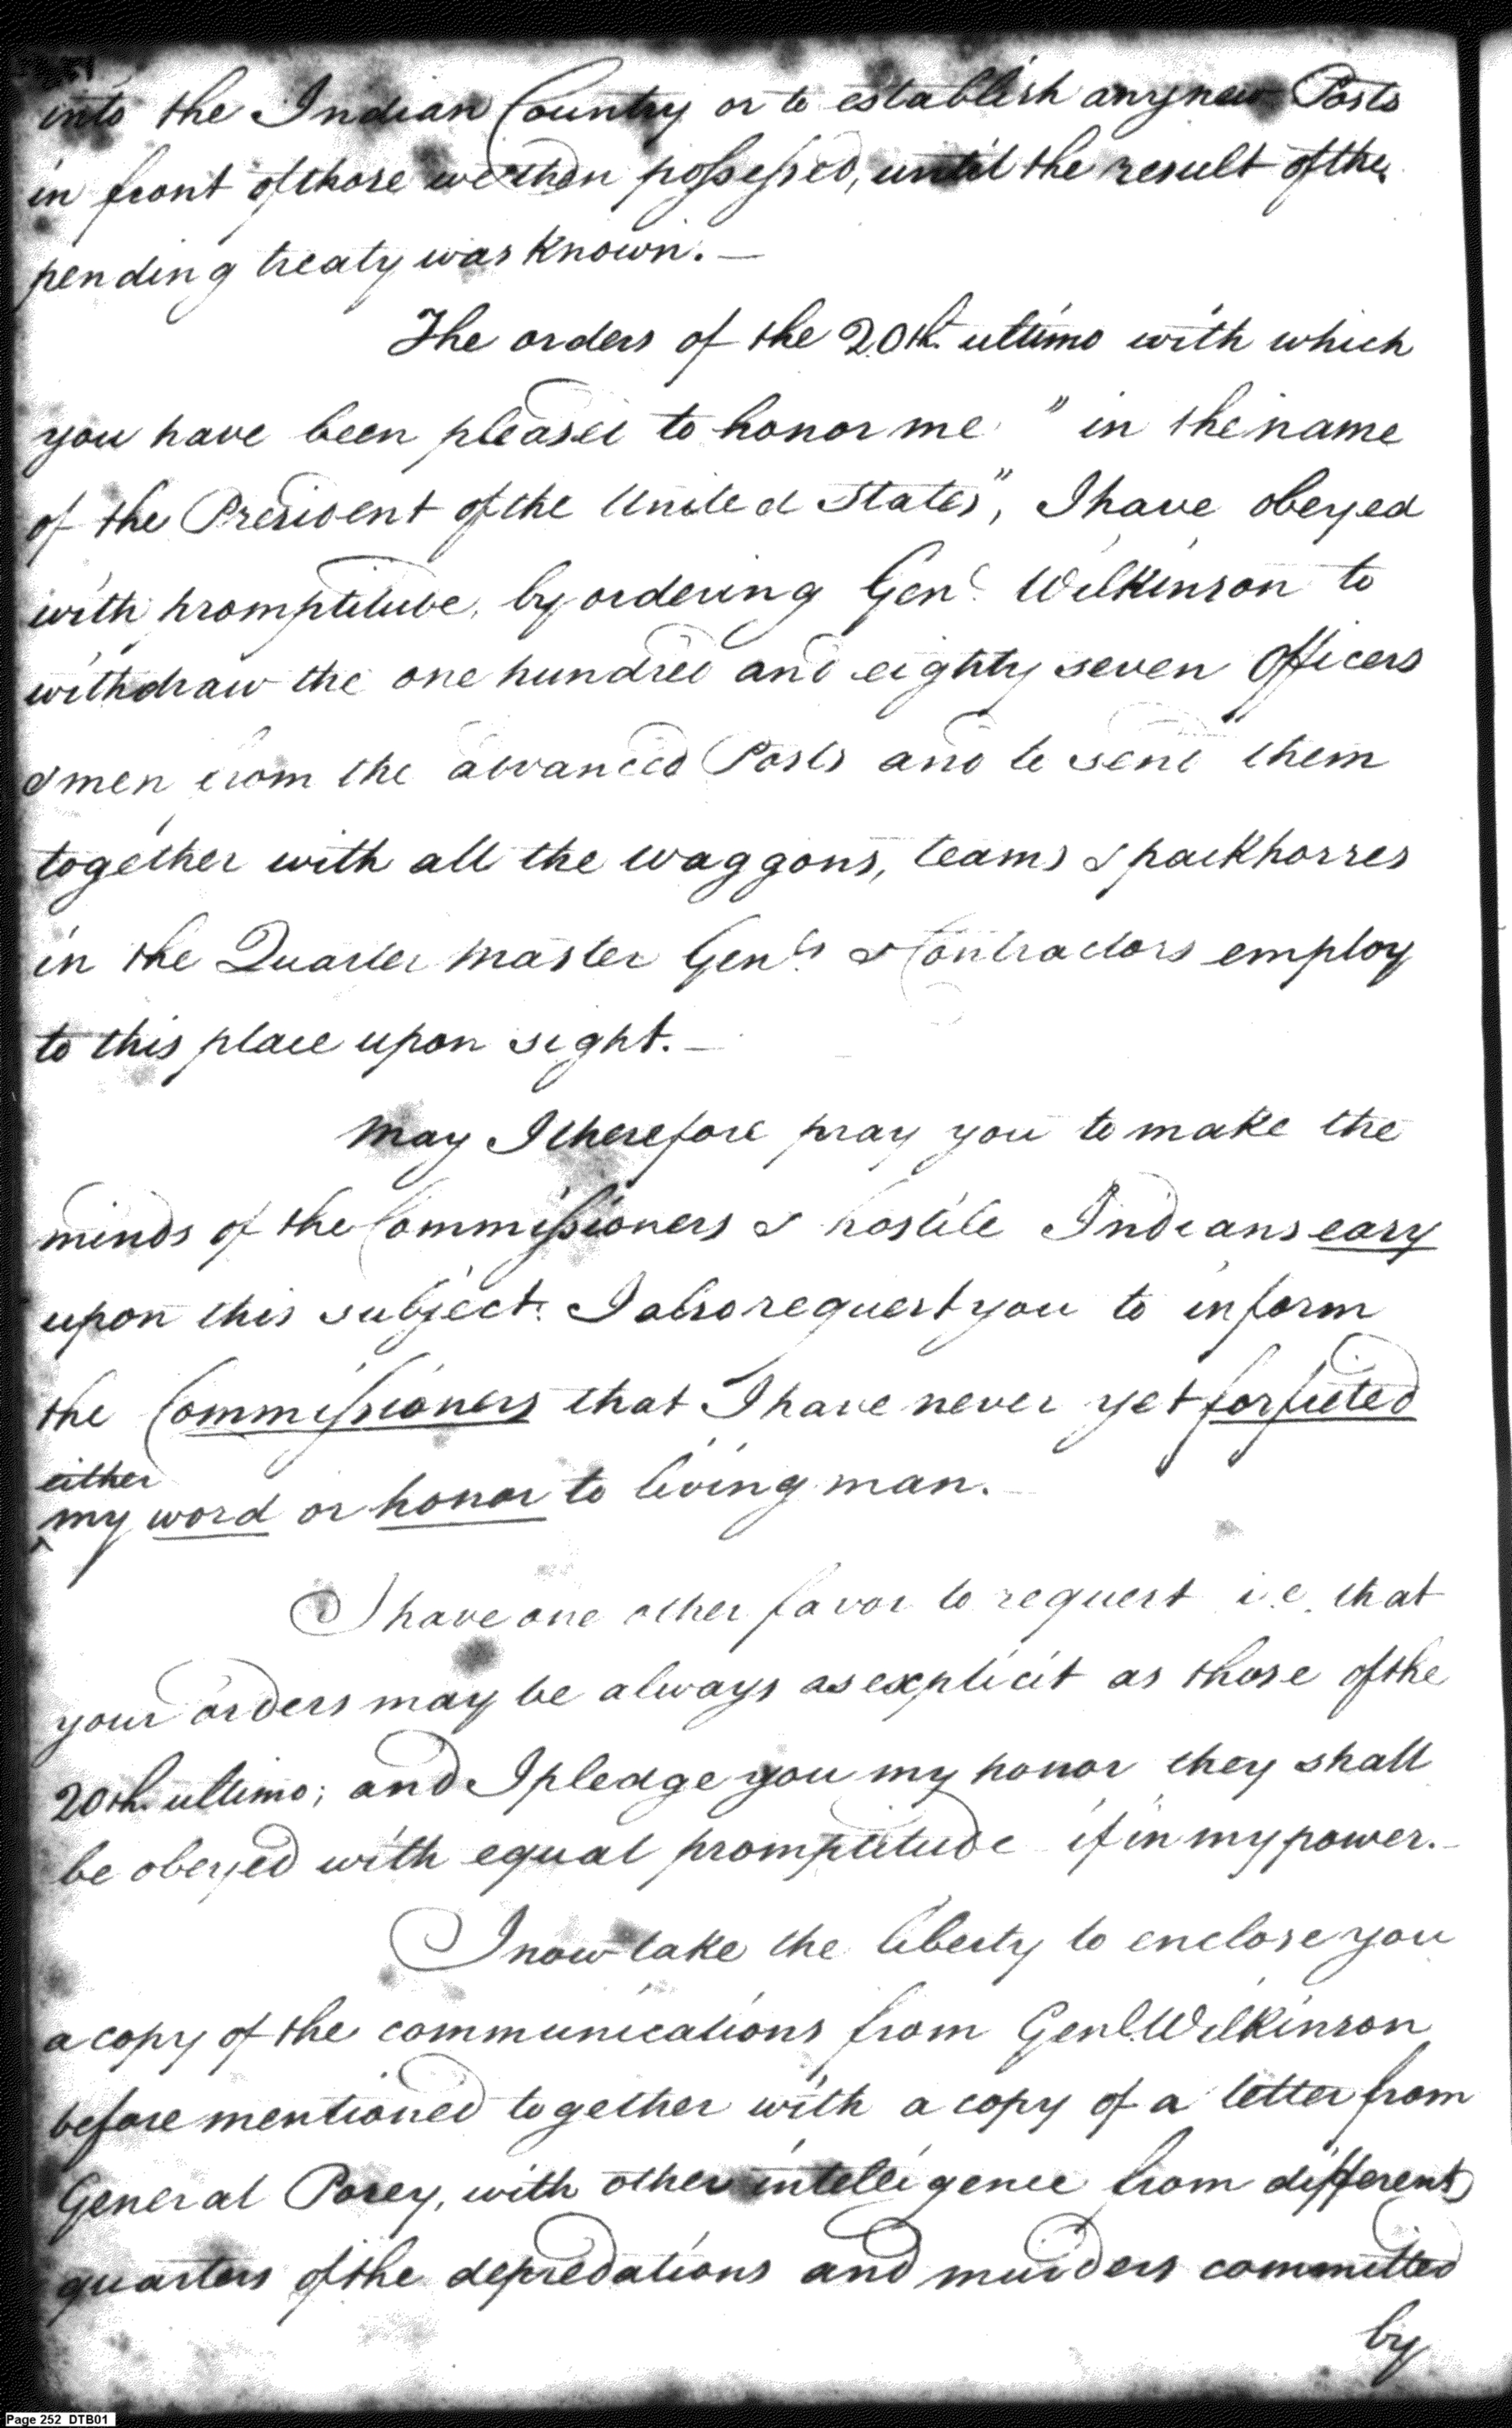 into the Indian Country or to establish any new Posts
in front of those we then possessed, until the result of the
pending treaty was known. —
The orders of the 20th. ultimo with which
you have been pleased to honor me " in the name
of the President of the United States", I have obeyed
with promptitude, by ordering Genl. Wilkinson to
withdraw the one hundred and eighty seven Officers
& men from the advanced Posts and to send them
together with all the waggons, teams & packhorses
in the Quarter Master Genls & Contractors employ
to this place upon sight. —
May I therefore pray you to make the
minds of the Commissioners & hostile Indians easy
upon this subject. I also request you to inform
the Commissioners that I have never yet forfieted
either
^my word or honor to living man. —
I have one other favor to request i.e. that
your orders may be always as explicit as those of the
20th. ultimo; and I pledge you my honor they shall
be obeyed with equal promptitude if in my power. —
I now take the liberty to enclose you
a copy of the communications from Genl. Wilkinson
before mentioned together with a copy of a letter from
General Posey, with other intelligence from different
quarters of the depredations and murders committed
by
Page 252 DTB01